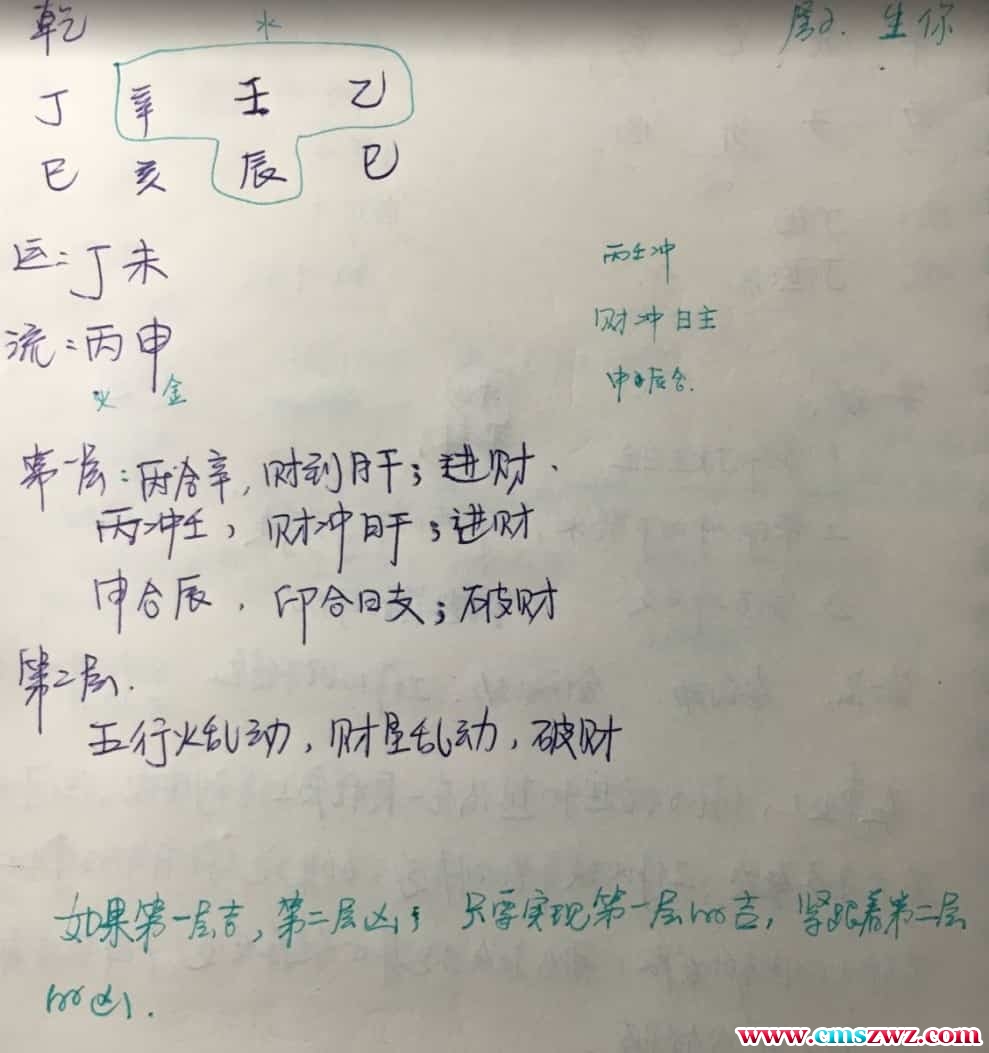 乾
水
生你
丁 辛 壬 乙
巳 亥 辰 巳
运:丁未
流:丙申
火 金
丙壬冲
财冲日主
申辰合.
第一层:丙合辛,财到月干;进财.
丙冲壬,财冲日干;进财
申合辰,印合日支;破财
第二层.
五行火乱动,财星乱动,破财
如果第一层吉,第二层凶;只要实现第一层的吉,紧跟着第二层
的凶.
www.cmszwz.com